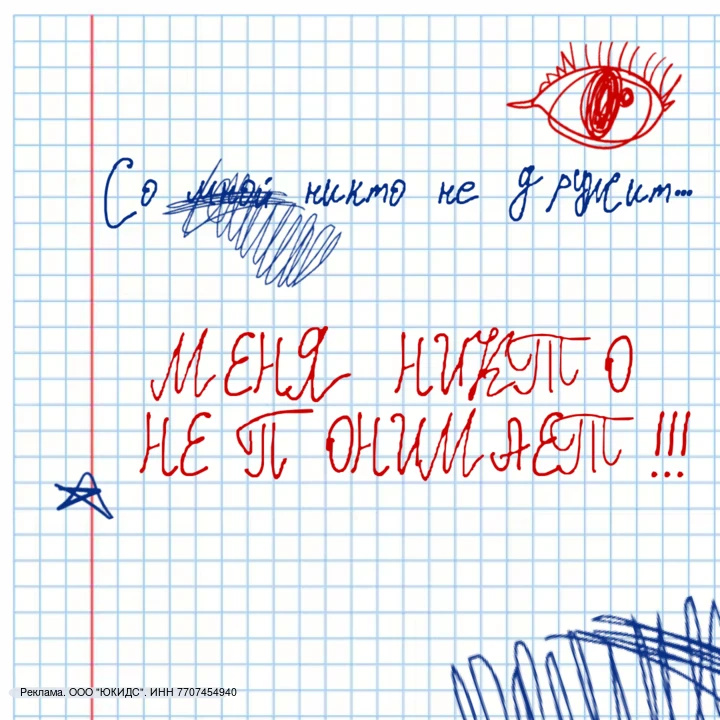 Со мной никто не дружит...
МЕНЯ НИКТО
НЕ ПОНИМАЕТ!!!
Реклама. ООО "ЮКИДС". ИНН 7707454940